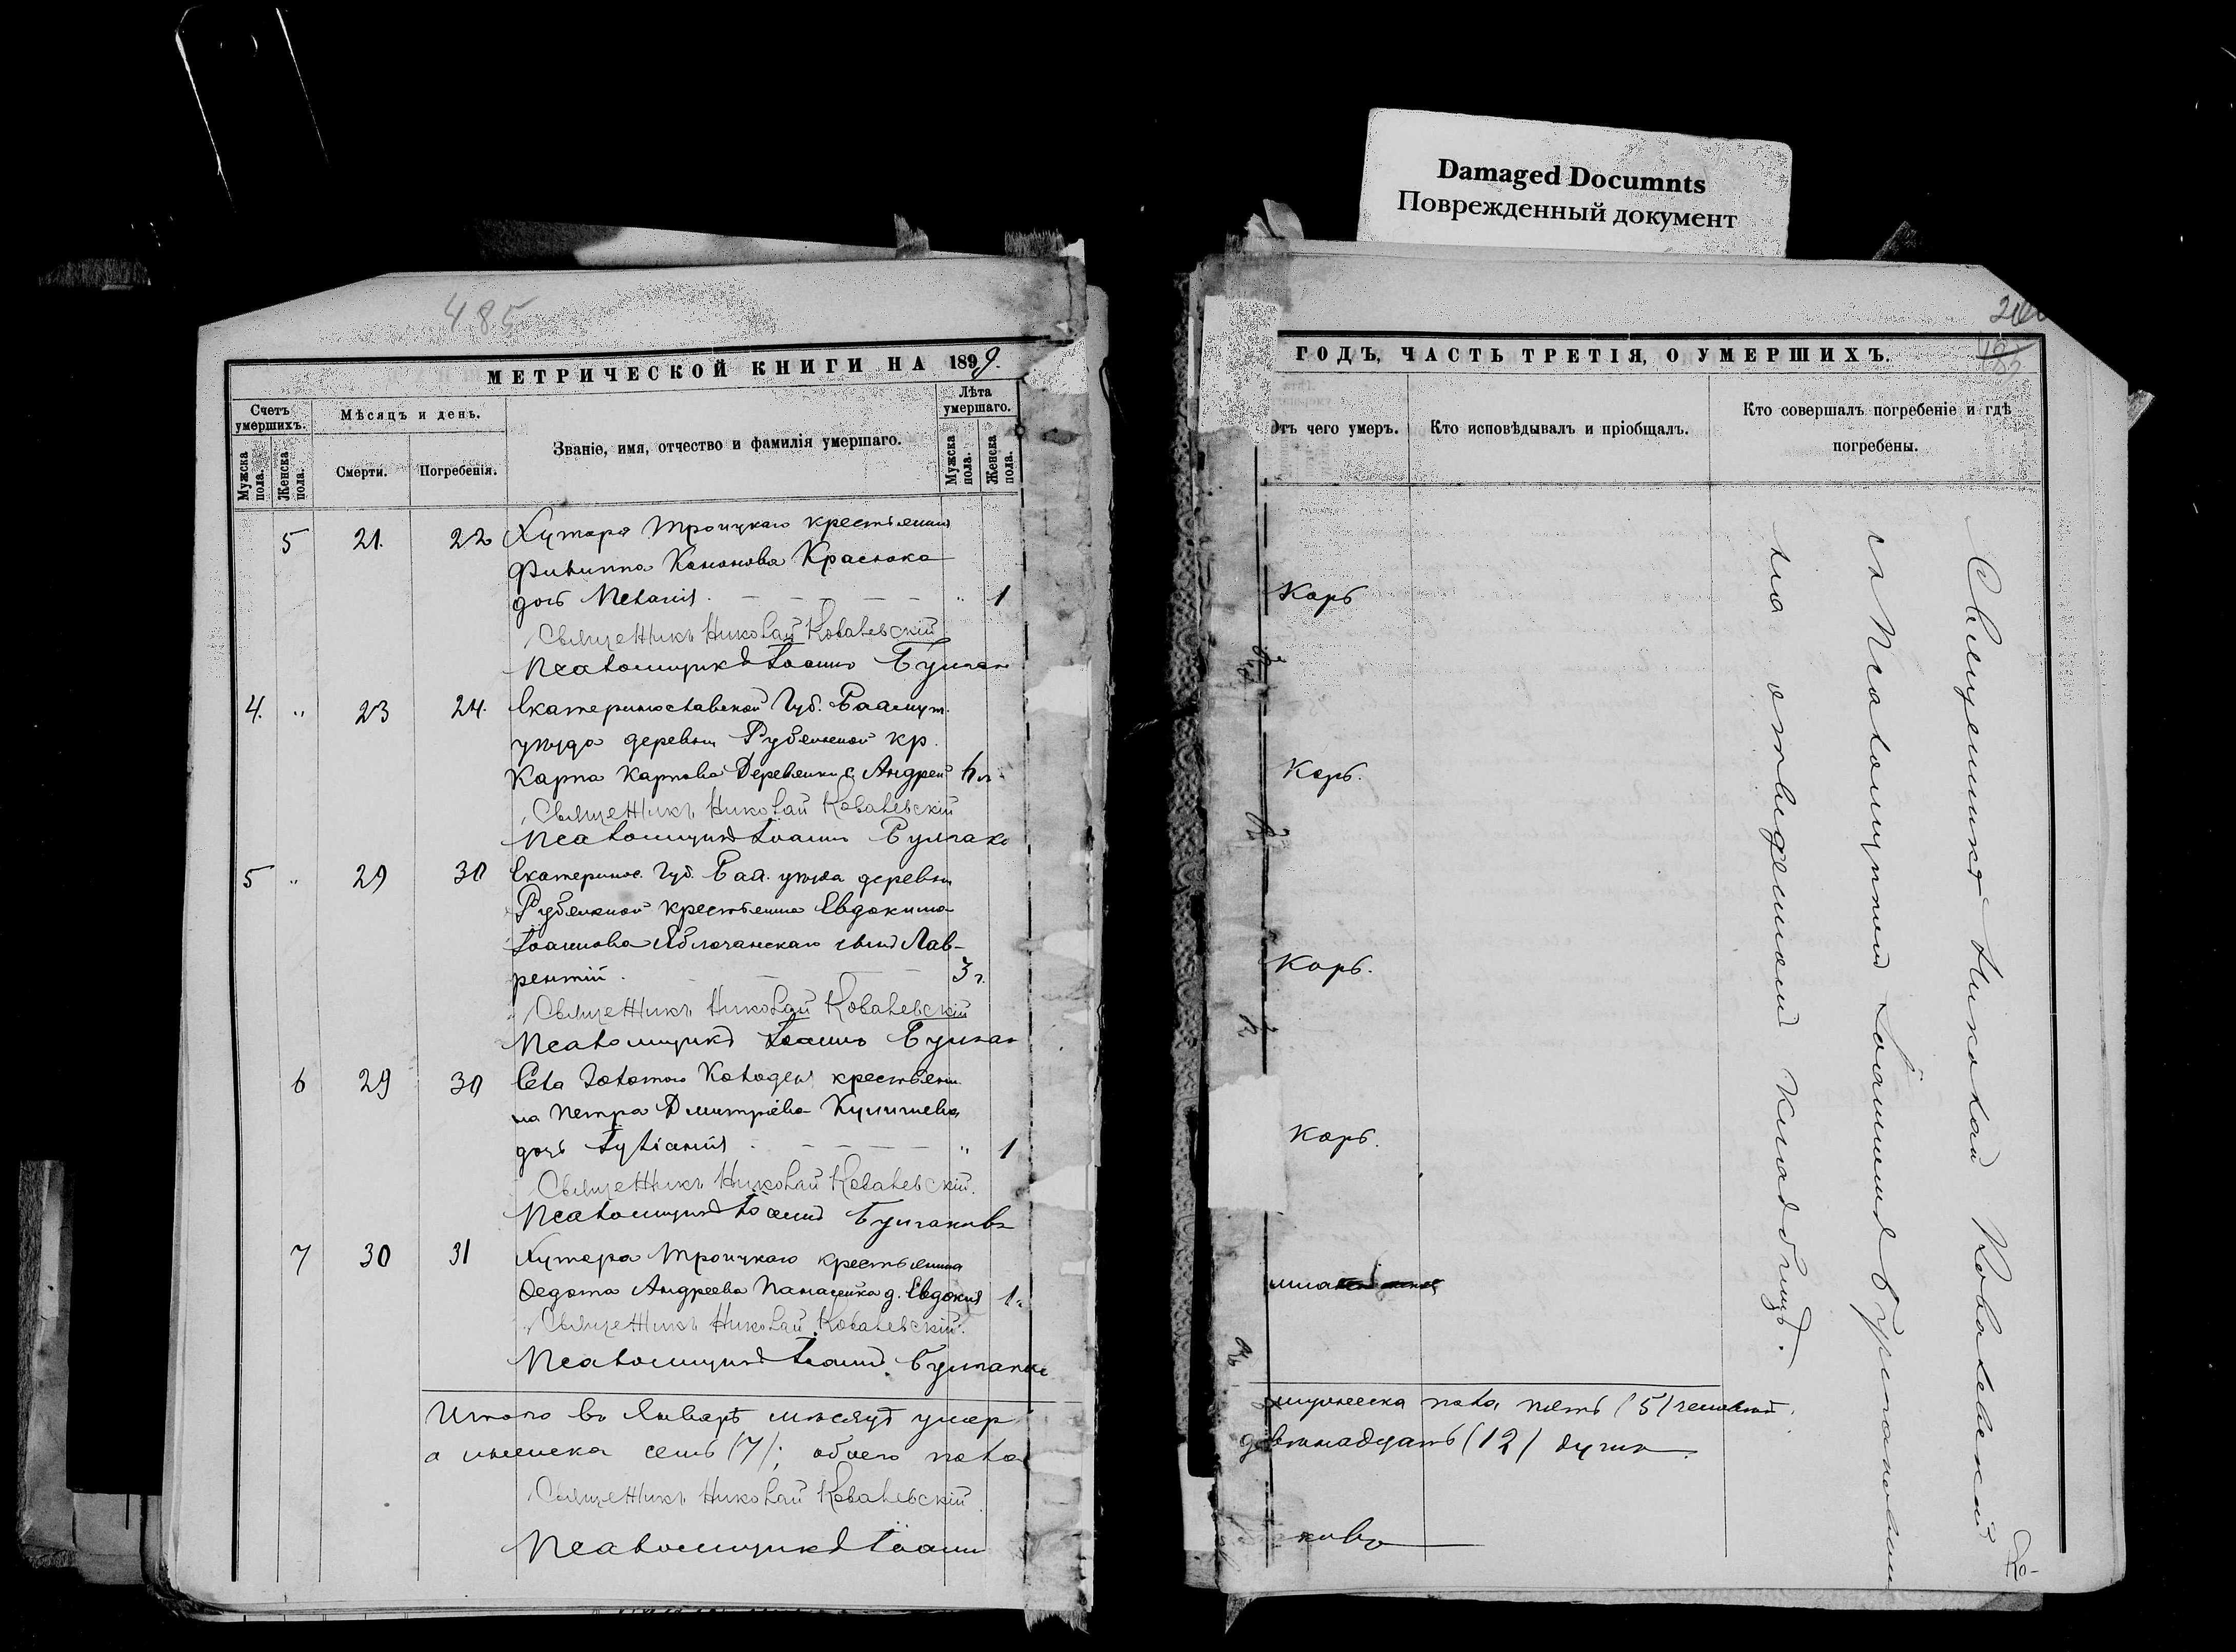 Damaged Documnts
Поврежденный документ
485
МЕТРИЧЕСКОЙ КНИГИ НА 1899.
Счетъ умершихъ.
Мужска пола.
Женска пола.
Мѣсяцъ и день.
Смерти.
Погребенія.
Званіе, имя, отчество и фамилія умершаго.
Лѣта умершаго.
Мужска пола.
Женска пола.
5 21. 22 Хутора Троицкаго крестьянина
Филиппа Кононова Краснока
дочь Меланія. — — — — " 1
Священникъ Николай Ковалевскій
Псаломщикъ Іоаннъ Булгак
4. " 23 24. Екатеринославской Губ. Бахмут.
уѣзда деревни Рубежной кр.
Карпа Карпова Деревянки с. Андрей
Священникъ Николай Ковалевскій
Псаломщикъ Іоаннъ Булгако
5 " 29 30 Екатеринос. Губ. Бах. уѣзда деревни
Рубежной крестьянина Евдокима
Іоаннова Яблочанскаго сынъ Лав-
рентій. — — — 3 г.
Священникъ Николай Ковалевскій
Псаломщикъ Іоаннъ Булгак
6 29 30 Села Золотого Колодезя крестьяни
на Петра Димитріева
дочь Іуліанія — — — — " 1
Священникъ Николай Ковалевскій.
Псаломщикъ Іоаннъ Булгаковъ
7 30 31 Хутора Троицкаго крестьянина
Ѳедота Андреева Панасенка д. Евдокія 1
Священникъ Николай Ковалевскій.
Псаломщикъ Іоаннъ Булгако
Итого въ Январѣ мѣсяцѣ умер
а женска семь (7); обоего пола
Священникъ Николай Ковалевскій
Псаломщикъ Іоанн
ГОДЪ, ЧАСТЬ ТРЕТІЯ, О УМЕРШИХЪ.
Отъ чего умеръ.
Кто исповѣдывалъ и пріобщалъ.
Кто совершалъ погребеніе и гдѣ погребены.
Корь
Корь.
Корь.
Корь.
Священникъ Николай Ковалевскій
съ Псаломщикомъ Іоанномъ Булгаковымъ
на отведенномъ кладбищѣ.
мужеска пола пять (5) человѣкъ,
двѣнадцать (12) душъ.
ковъ